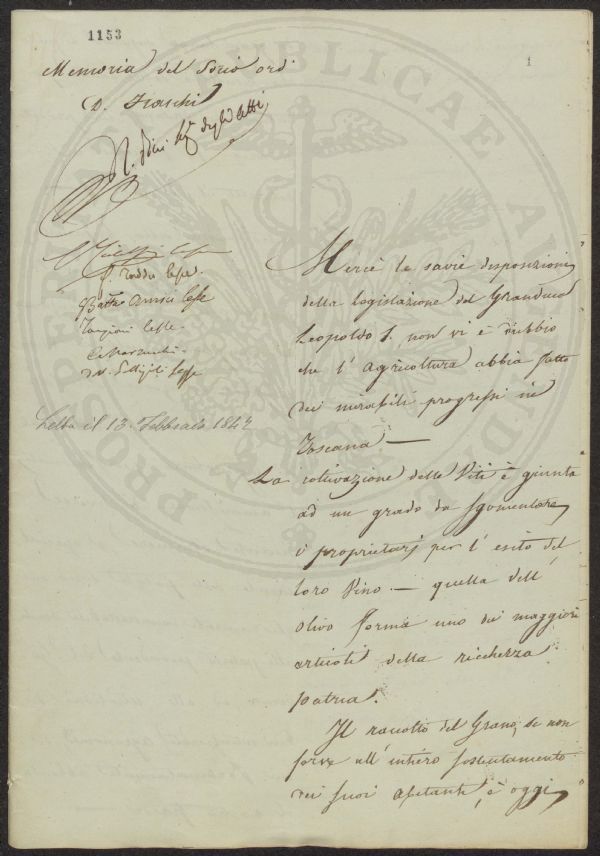 1153
1
Memoria del Socio ord.
D. Fraschi
degli Atti
lesse
Taddei lesse
lesse
Targioni lesse
lesse
Letta il 13. Febbraio 1842
PROSPERITATI PUBLICAE AUGENDAE
Mercè le savie disposizioni
della legislazione del Granduca
Leopoldo I. non vi è dubbio
che l' agricoltura abbia fatto
dei mirabili progressi in
Toscana —
La coltivazione delle Viti è giunta
ad un grado da sgomentare
i proprietarj per l' esito del
loro Vino — quella dell'
olivo forma uno dei maggiori
articoli della ricchezza
patria.
Il raccolto del Grano, se non
serve all' intero sostentamento
dei suoi abitanti, è oggi